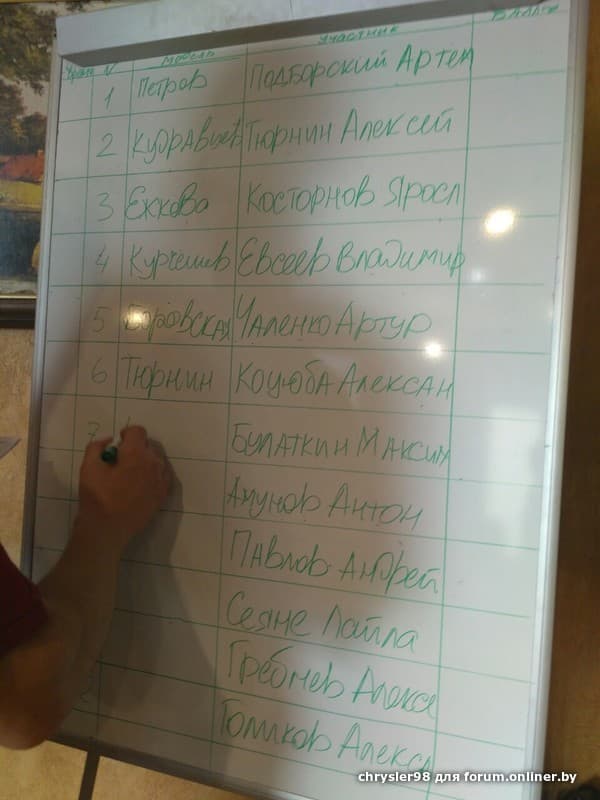 № Модель Участник Баллы
1 Петров Подборский Артем
2 Кудравцев Тюрнин Алексей
3 Ежкова Косторнов Яросл
4 Евсеев Владимир
5 Боровская Чаленко Артур
6 Тюрнин Коцюба Алексан
7 Булаткин Максим
Ахунов Антон
Павлов Андрей
Сеяне Лайла
Гребнев Алексе
Голиков Алекса
chrysler98 для forum.onliner.by